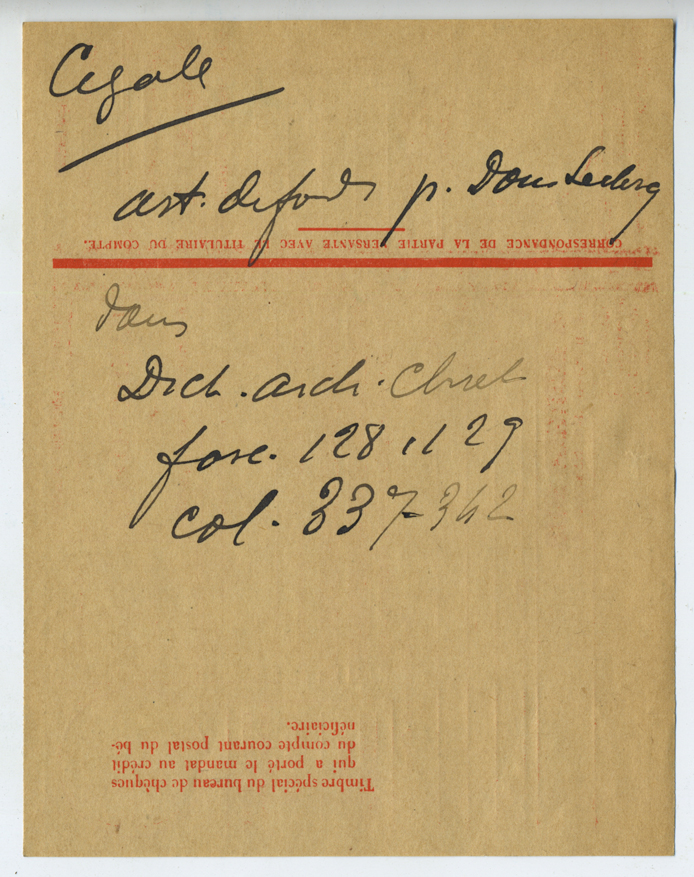 Cigale
art. de fonds p. Dom Leclercq
CORRESPONDANCE DE LA PARTIE VERSANTE AVEC LE TITULAIRE DU COMPTE.
dans
Dict. arch. Chret
fasc. 128.129
col. 337-342
Timbre spécial du bureau de chèques
qui a porté le mandat au crédit
du compte courant postal du bé-
néficiaire.